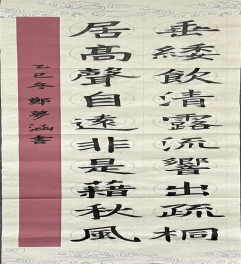 垂緌飲清露流響出疏桐
居高聲自遠非是藉秋風
乙巳冬鄭夢涵書